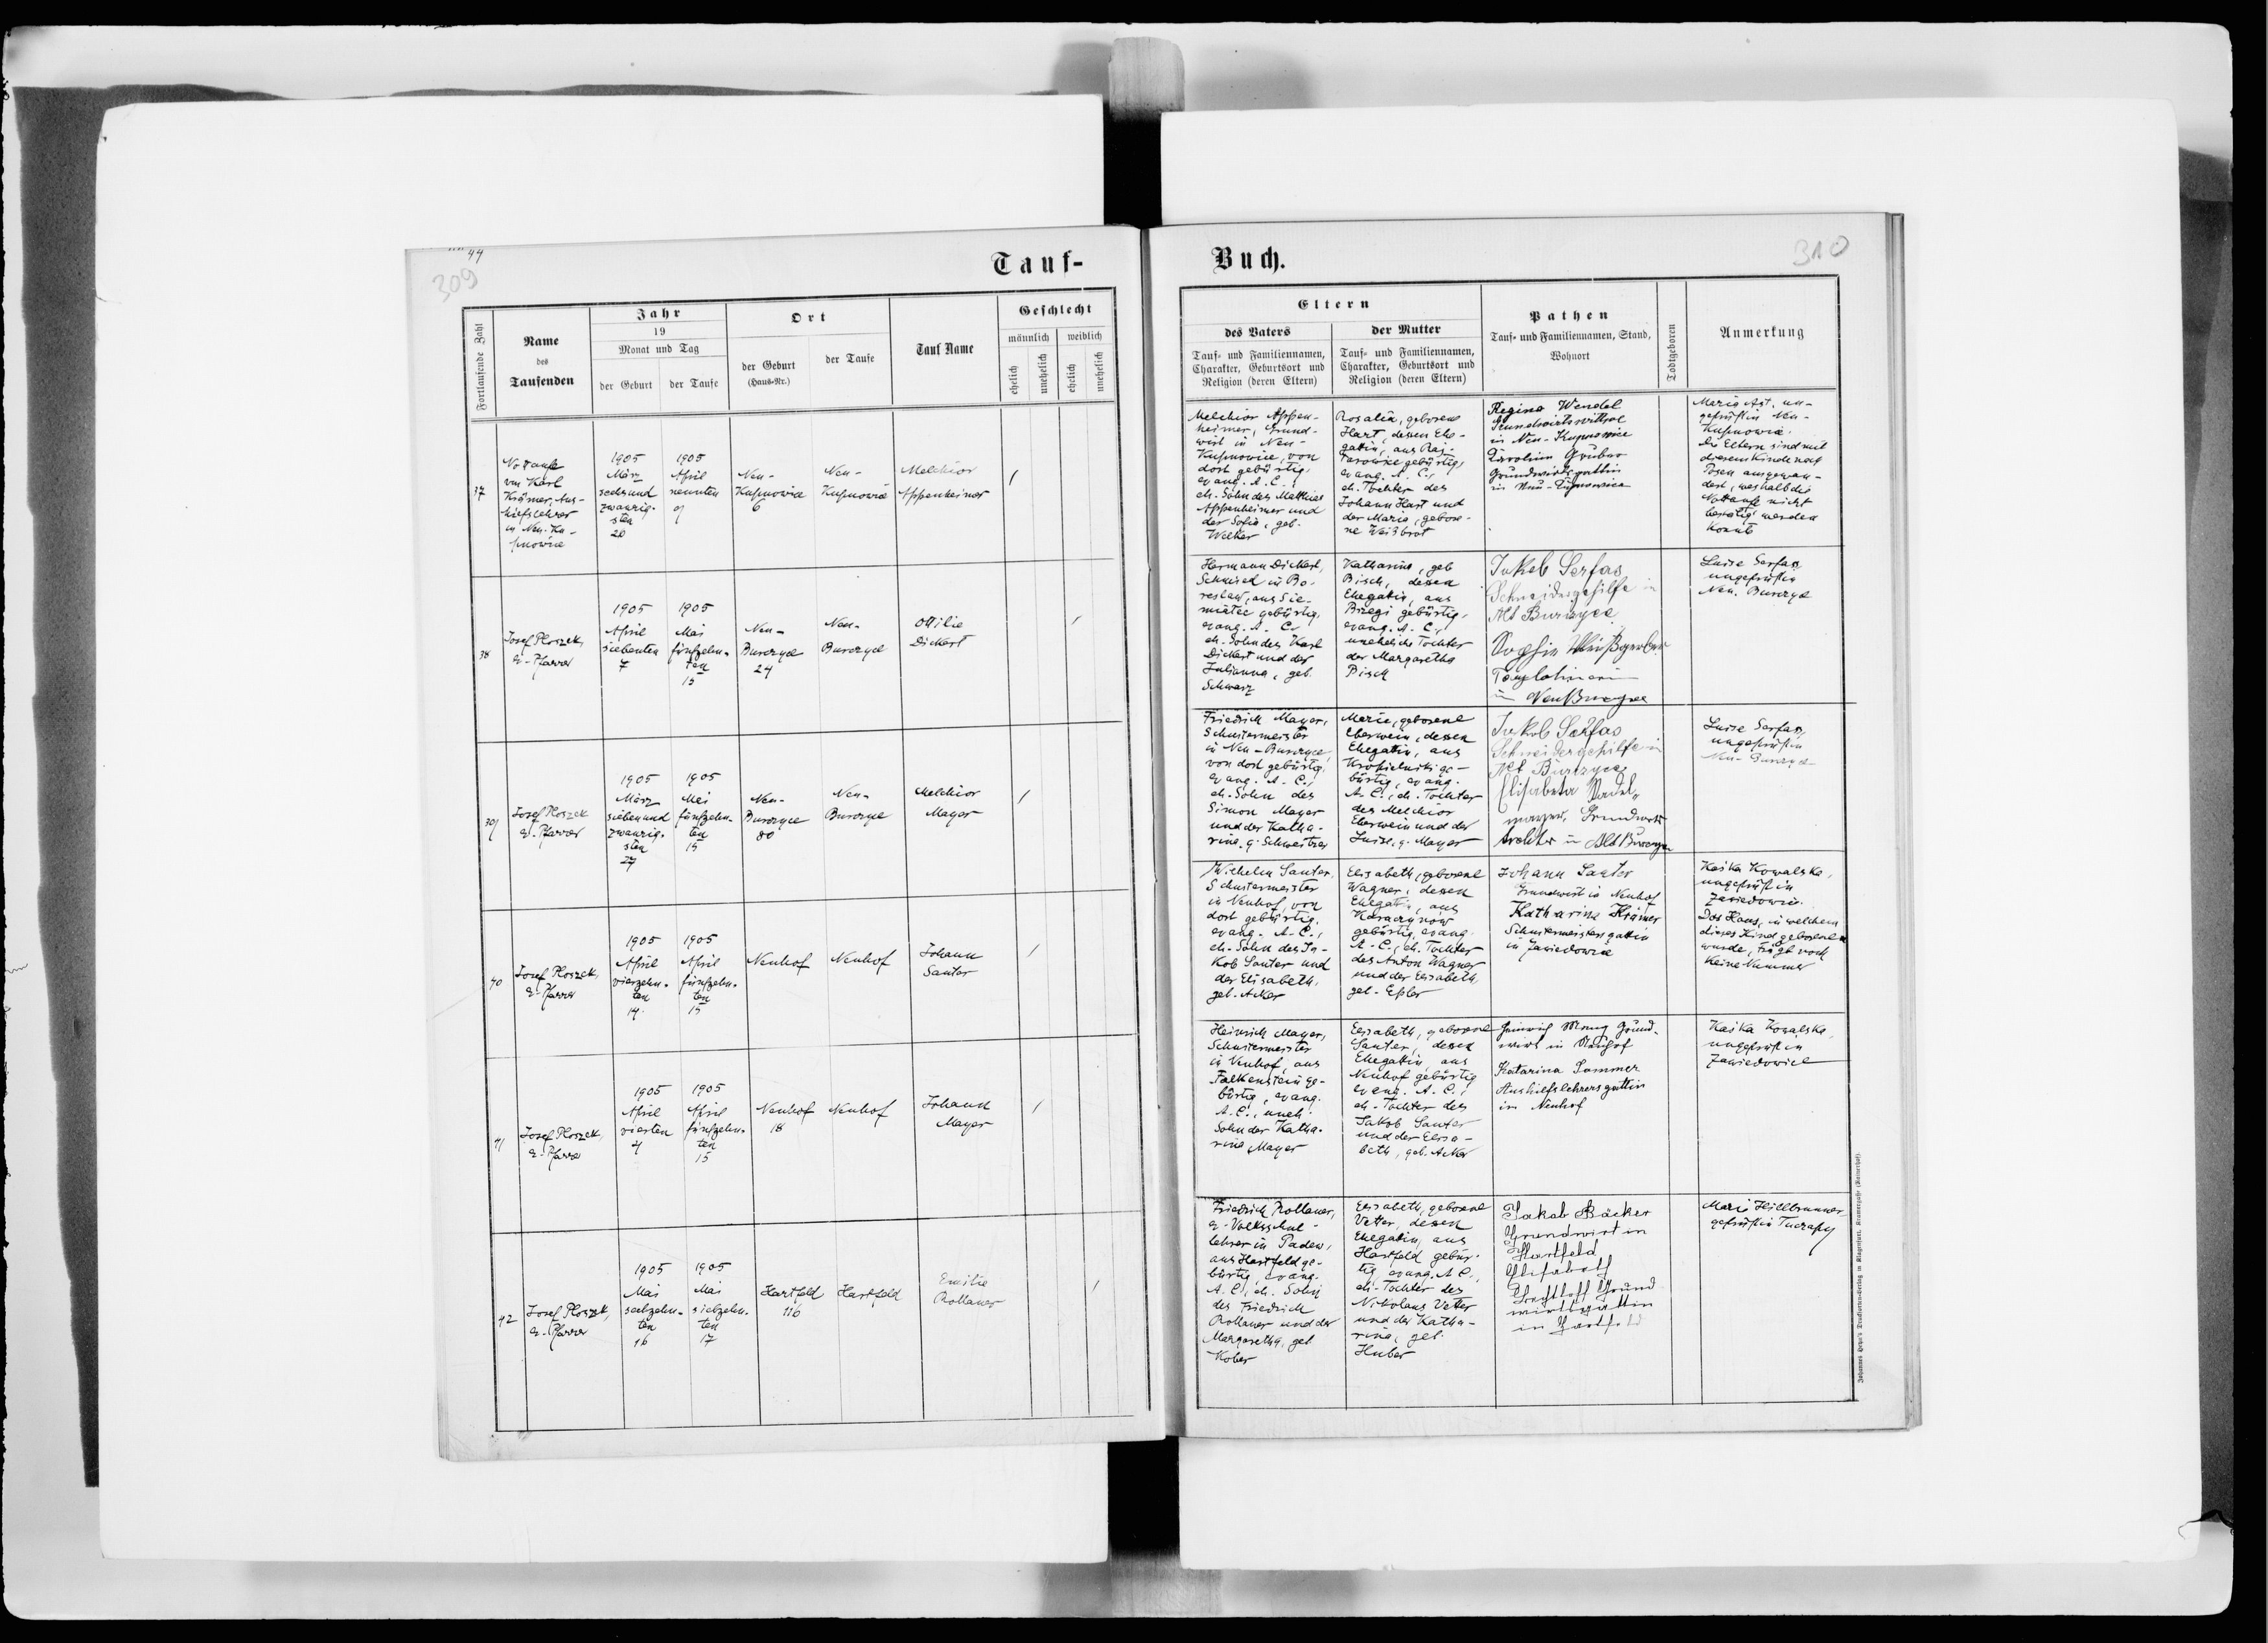 44
309
Tauf-
Fortlaufende Zahl
Name
des
Taufenden
Jahr
19
Monat und Tag
der Geburt
der Taufe
Ort
der Geburt
(Haus-Nr.)
der Taufe
Tauf Name
Geschlecht
männlich
weiblich
ehelich
unehelich
ehelich
unehelich
37
Nottaufe
von Karl
Krämer, Aus-
hilfslehrer
in Neu-Ku-
pnowice
1905
März
sechsund
zwanzig-
sten
26
1905
April
neunten
9
Neu-
Kupnowice
6
Neu-
Kupnowice
Melchior
Appenheimer
38
Josef Ploszek,
ev. Pfarrer
1905
April
siebenten
7
1905
Mai
fünfzehn-
ten
15
Neu-
Burczyce
24
Neu-
Burczyce
Ottilie
Dickert
39
Josef Ploszek
ev. Pfarrer
1905
März
siebenund
zwanzig-
sten
27
1905
Mai
fünfzehn-
ten
15
Neu-
Burczyce
80
Neu-
Burczyce
Melchior
Mayer
40
Josef Ploszek,
ev. Pfarrer
1905
April
vierzehn-
ten
14
1905
April
fünfzehn-
ten
15
Neuhof
Neuhof
Johann
Santer
41
Josef Ploszek,
ev. Pfarrer
1905
April
vierten
4
1905
April
fünfzehn-
ten
15
Neuhof
18
Neuhof
Johann
Mayer
42
Josef Ploszek,
ev. Pfarrer
1905
Mai
sechzehn-
ten
16
1905
Mai
siebzehn-
ten
17
Hartfeld
116
Hartfeld
Emilie
Rollauer
Buch.
310
Eltern
des Vaters
Tauf- und Familiennamen,
Charakter, Geburtsort und
Religion (deren Eltern)
der Mutter
Tauf- und Familiennamen,
Charakter, Geburtsort und
Religion (deren Eltern)
Pathen
Tauf- und Familiennamen, Stand,
Wohnort
Todtgeboren
Anmerkung
Melchior Appen-
heimer, Grund-
wirt in Neu-
Kupnowice, von
dort gebürtig,
evang. A. C.,
eh. Sohn des Mathias
Appenheimer und
der Sofia, geb.
Welker
Rosalia, geborene
Hart, dessen Ehe-
gattin, aus Raj-
tarowice gebürtig,
evang. A. C.,
eh. Tochter des
Johann Hart und
der Maria, gebore-
ne Weißbrot
Regina Wendel
Grundwirtswittwe
in Neu-Kupnowice
Karolina Gruber
Grundwirtsgattin
in Neu-Kupnowice
Maria Ast, un-
geprüft in Neu-
Kupnowice.
Die Eltern sind mit
diesem Kinde nach
Posen ausgewan-
dert, weshalb die
Nottaufe nicht
bestätigt werden
konnte
Hermann Dickert,
Schmied in Bo-
reslaw, aus Sie-
miatec gebürtig,
evang. A. C.,
eh. Sohn des Karl
Dickert und der
Julianna, geb.
Schwarz
Katharina, geb
Bisch, dessen
Ehegattin, aus
Brzegi gebürtig,
evang. A. C.,
uneheliche Tochter
der Margaretha
Bisch
Jakob Serfas
Schneidergehilfe in
Alt Burczyce
Sophie Weißgerber
in Neu Burczyce
Luise Serfas,
ungeprüft in
Neu-Burczyce
Friedrich Mayer,
Schustermeister
in Neu-Burczyce,
von dort gebürtig,
evang. A. C.,
eh. Sohn des
Simon Mayer
und der Katha-
rina, g. Schweitzer
Marie, geborene
Eberwein, dessen
Ehegattin, aus
Kropielniki ge-
bürtig, evang.
A. C., eh. Tochter
des Melchior
Eberwein und der
Luise, g. Mayer
Jakob Serfas
Schneidergehilfe in
Alt Burczyce
Elisabeta Nadel-
mayer, Grundwirts
tochter in Alt Burczyce
Luise Serfas,
ungeprüft in
Neu-Burczyce
Wilhelm Santer,
Schustermeister
in Neuhof, von
dort gebürtig,
evang. A. C.,
eh. Sohn des Ja-
kob Santer und
der Elisabeth,
geb. Acker
Elisabeth, geborene
Wagner, dessen
Ehegattin, aus
Karaczynów
gebürtig, evang.
A. C., eh. Tochter
des Anton Wagner
und der Elisabeth,
geb. Epler
Johann Santer
Grundwirt in Neuhof
Katharina Krämer
Schustermeistersgattin
in Zawiedowice
Kaśka Kowalska,
ungeprüft in
Zawiedowice.
Das Haus, in welchem
dieses Kind geboren
wurde, trägt noch
keine Nummer
Heinrich Mayer,
Schustermeister
in Neuhof, aus
Falkenstein ge-
bürtig, evang.
A. C., uneh.
Sohn der Katha-
rina Mayer
Elisabeth, geborene
Santer, dessen
Ehegattin, aus
Neuhof gebürtig
evang. A. C.,
eh. Tochter des
Jakob Santer
und der Elisa-
beth, geb. Acker
Heinrich Mang Grund-
wirt in Neuhof
Katarina Sommer
Aushilfslehrersgattin
in Neuhof
Kaśka Kowalska,
ungeprüft in
Zawiedowice
Friedrich Rollauer,
ev. Volksschul-
lehrer in Padew,
aus Hartfeld ge-
bürtig, evang.
A. C., eh. Sohn
des Friedrich
Rollauer und der
Margaretha, geb
Kober
Elisabeth, geborene
Vetter, dessen
Ehegattin, aus
Hartfeld gebür-
tig, evang. A. C.,
eh. Tochter des
Nikolaus Vetter
und der Katha-
rina, geb.
Huber
Jakob Bäcker
Grundwirt in
Hartfeld
Elisabeth
Grund
wirtsgattin
in Hartfeld
Marie Hillbrunner
geprüft in Tuczapy